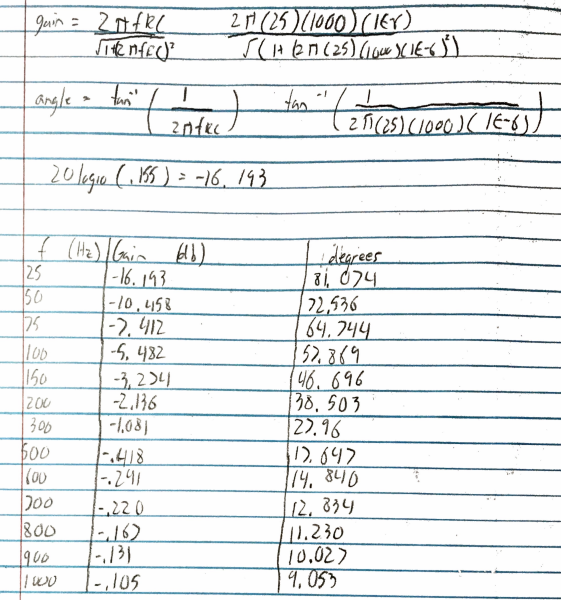 gain = 2πfRC / √1+(2πfRC)² 2π(25)(1000)(1E-6) / √(1+(2π(25)(1000)(1E-6)²)
angle = tan⁻¹ (1 / 2πfRC) tan⁻¹ (1 / 2π(25)(1000)(1E-6))
20log10 (.155) = -16.193
f (Hz) Gain (db) degrees
25 -16.193 81.074
50 -10.458 72.536
75 -7.412 64.744
100 -5.482 57.869
150 -3.274 46.696
200 -2.136 38.503
300 -1.081 27.96
500 -.418 17.647
600 -.291 14.840
700 -.220 12.834
800 -.167 11.230
900 -.131 10.027
1000 -.105 9.053